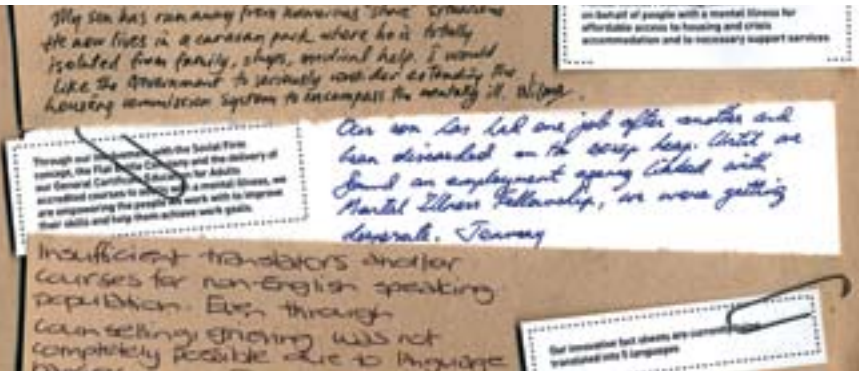 My son has run away from numerous share situations
He now lives in a caravan park where he is totally
isolated from family, shops, medical help. I would
like the Government to seriously consider extending the
housing commission system to encompass the mentally ill.
on behalf of people with a mental illness for
affordable access to housing and crisis
accommodation and to necessary support services
Through our with the Social Firm
concept, the Company and the delivery of
our General for Adults
accredited courses to a mental illness, we
are empowering the people we work with to improve
their skills and help them achieve work goals.
Our son has had one job after another and
been discarded on the scrap heap. Until we
found an employment agency linked with
Mental Illness Fellowship, we were getting
desperate.
Insufficient translators and/or
courses for non-English speaking
population. Even through
counselling, grieving was not
completely possible due to language
Our innovative fact sheets are
translated into 5 languages